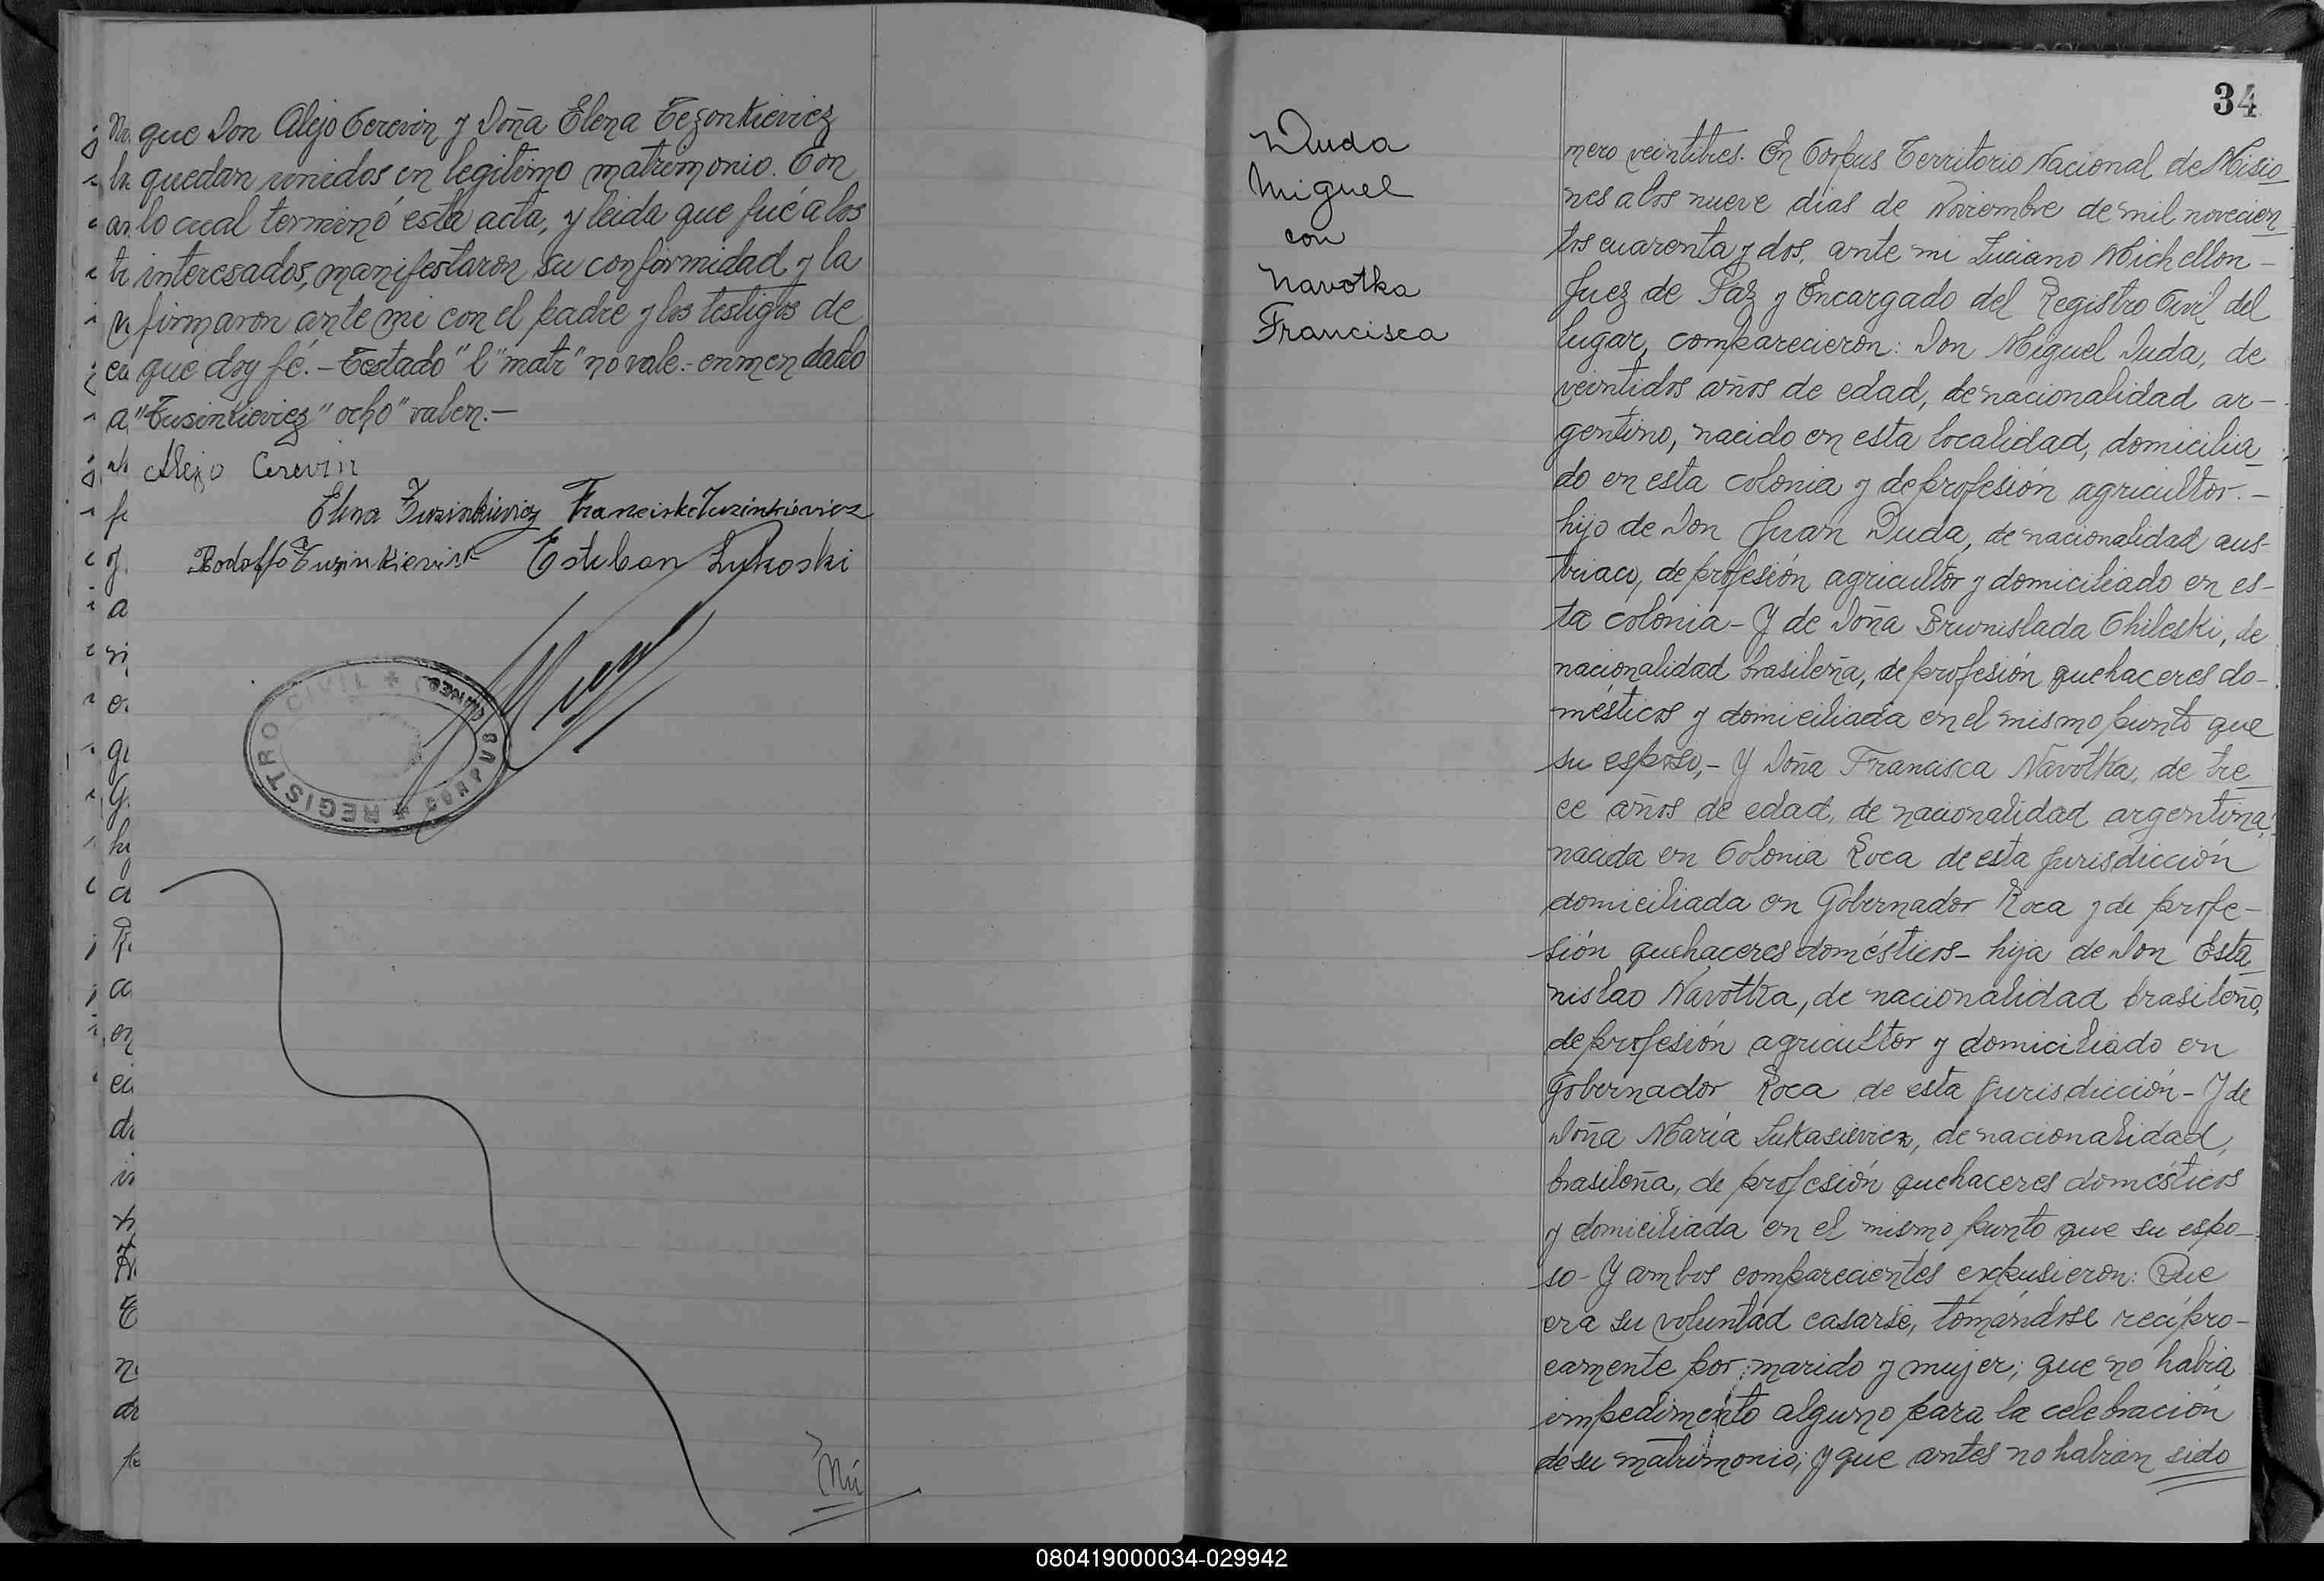 que Don Alejo Cerevin y Doña Elena Tezonkieviez
quedan unidos en legitimo matrimonio. Con
lo cual terminó esta acta, y leida que fué a los
interesados, manifestaron su conformidad y la
firmaron ante mi con el padre y los testigos de
que doy fé.- Testado "l" matr" no vale.- enmendado
"Tusinkieviez" ocho" valen.-
Alejo Cerevin
Elena Tuzinkieviez Franciska Tuzinkieviez
Rodolfo Tuzinkieviez Esteban Lukoski
REGISTRO CIVIL * CORPUS (MISIONES) *
Nú
34
Duda
Miguel
con
Navotka
Francisca
mero veintitres. En Corpus Territorio Nacional de Misio
nes a los nueve dias de Noviembre de mil novecien
tos cuarenta y dos, ante mi Luciano Michellon -
Juez de Paz y Encargado del Registro Civil del
lugar, comparecieron: Don Miguel Duda, de
veintidos años de edad, de nacionalidad ar-
gentino, nacido en esta localidad, domicilia
do en esta colonia y de profesión agricultor.-
hijo de Don Juan Duda, de nacionalidad aus-
triaco, de profesión agricultor y domiciliado en es-
ta colonia - Y de Doña Brunislada Chileski, de
nacionalidad brasileña, de profesión quehaceres do-
mésticos y domiciliada en el mismo punto que
su esposo,- Y Doña Francisca Navotka, de tre
ce años de edad, de nacionalidad argentina,
nacida en Colonia Roca de esta Jurisdicción
domiciliada en Gobernador Roca y de profe-
sión quehaceres domésticos - hija de Don Esta
nislao Navotka, de nacionalidad brasileño,
de profesión agricultor y domiciliado en
Gobernador Roca de esta Jurisdicción - Y de
Doña María Lukasieviez, de nacionalidad,
brasileña, de profesión quehaceres domésticos
y domiciliada en el mismo punto que su espo-
so - Y ambos comparecientes expusieron: Que
era su voluntad casarse, tomándose recípro-
camente por marido y mujer; que no habia
impedimento alguno para la celebración
de su matrimonio; Y que antes no habian sido
080419000034-029942